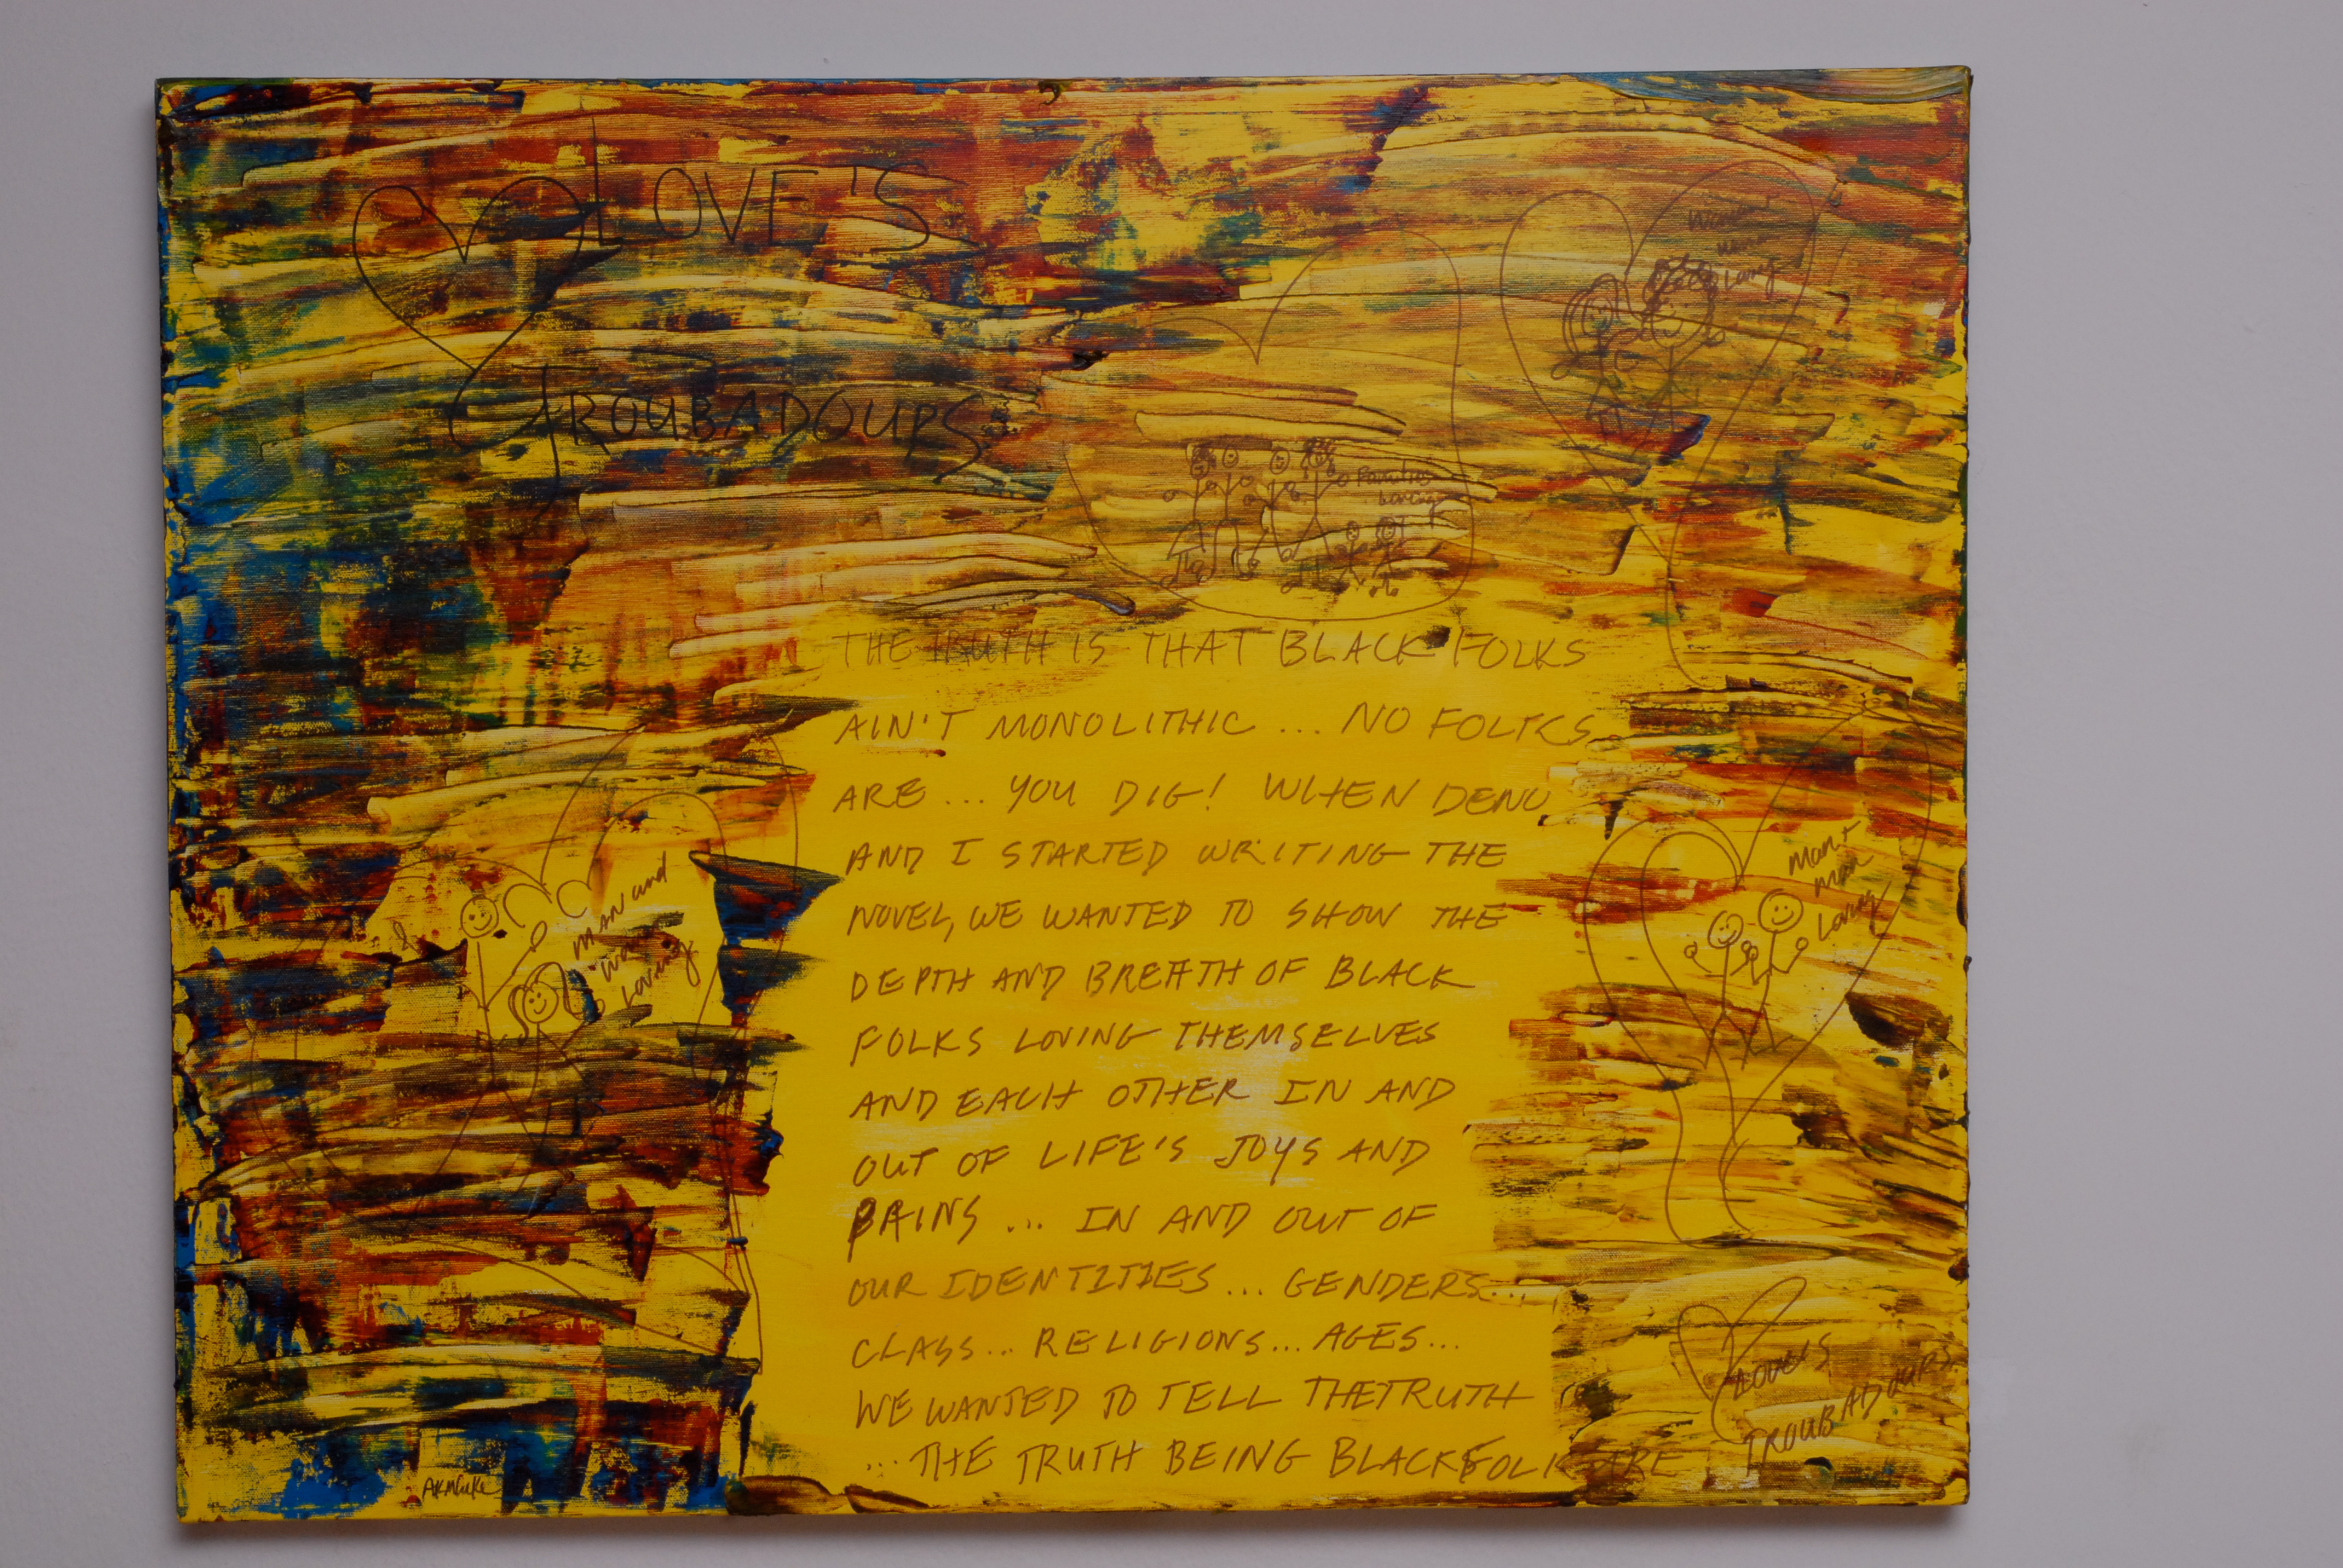 LOVE'S
TROUBADOURS
Woman +
Loving
Families
Loving
THE TRUTH IS THAT BLACK FOLKS
AIN'T MONOLITHIC... NO FOLKS
ARE... YOU DIG! WHEN DENO
AND I STARTED WRITING THE
NOVEL, WE WANTED TO SHOW THE
DEPTH AND BREATH OF BLACK
FOLKS LOVING THEMSELVES
AND EACH OTHER IN AND
OUT OF LIFE'S JOYS AND
PAINS... IN AND OUT OF
OUR IDENTITIES... GENDERS...
CLASS... RELIGIONS... AGES...
WE WANTED TO TELL THE TRUTH
...THE TRUTH BEING BLACK FOLK ARE
MAN and
Woman
Loving
Man +
Man
Loving
LOVE'S
TROUBADOURS